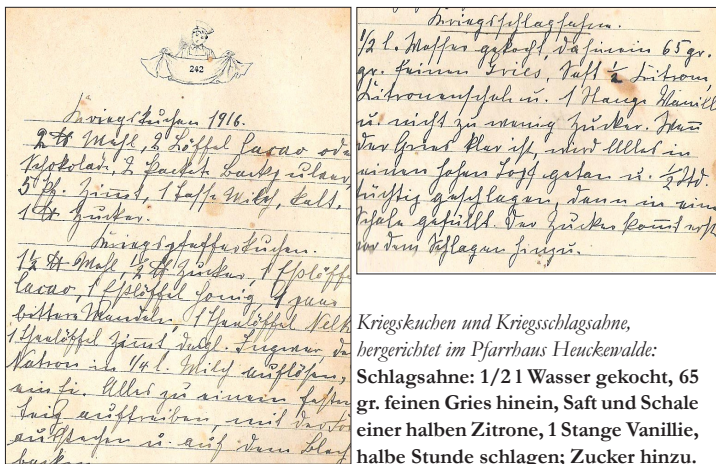 242
Kriegskuchen 1916.
2 ℔ Mehl, 2 Löffel Cacao ode
Schokolad, 2 Packet Backpulver,
5 Pf. Zimt, 1 Tasse Milch, kalt,
1 ℔ Zucker.
Kriegspfefferkuchen.
1½ ℔ Mehl, ½ ℔ Zucker, 1 Eßlöffe
Cacao, 1 Eßlöffel Honig, 1 paar
bittere Mandeln, 1 Theelöffel Nelk
1 Theelöffel Zimt, desgl. Ingwer, de
Natron in ¼ l. Milch auflösen,
ein Ei. Alles zu einem festen
Teig auftreiben, mit der
ausstechen u. auf dem Blech
backen.
Kriegsschlagsahne.
½ l. Wasser gekocht, dahinein 65 gr.
gr. feinen Gries, Saft ½ Zitrone,
Zitronenschale u. 1 Stange Vanill
u. nicht zu wenig Zucker. Wenn
der Gries klar ist, wird Alles in
einen hohen Topf getan u. ½ Std.
tüchtig geschlagen, dann in eine
Schale gefüllt. Der Zucker kommt erst
vor dem Schlagen hinzu.
Kriegskuchen und Kriegsschlagsahne,
hergerichtet im Pfarrhaus Heuckewalde:
Schlagsahne: 1/2 l Wasser gekocht, 65
gr. feinen Gries hinein, Saft und Schale
einer halben Zitrone, 1 Stange Vanillie,
halbe Stunde schlagen; Zucker hinzu.